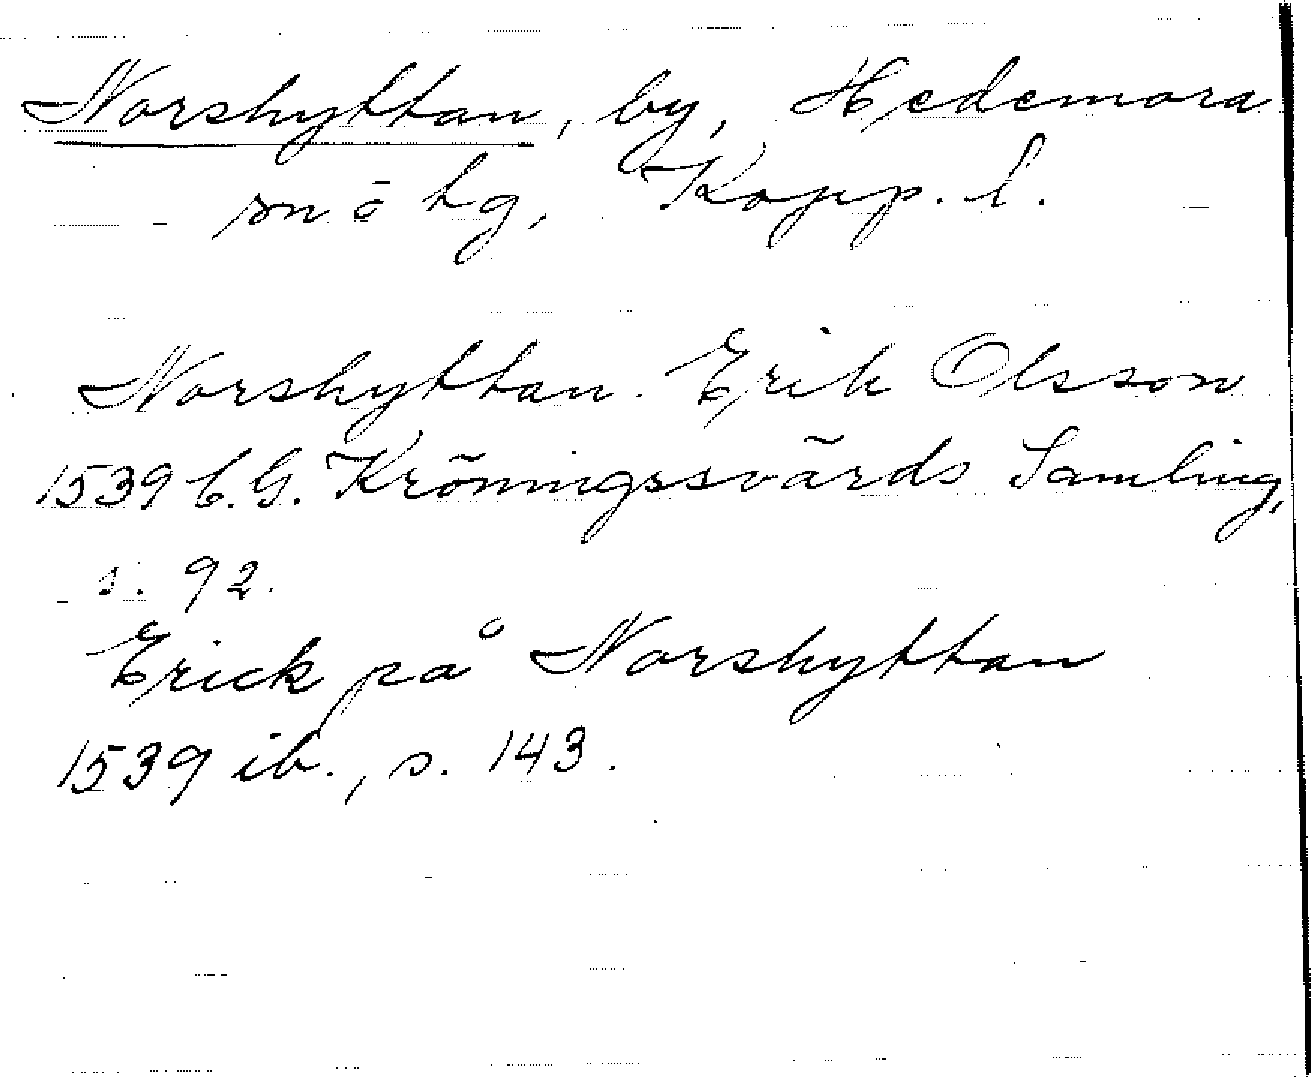 Norshyttan, by, Hedemora
sn ö hg, Kopp. l.
Norshyttan. Erik Olsson
1539 C.G. Kröningssvärds Samling,
s. 92.
Erick på Norshyttan
1539 ib., s. 143.